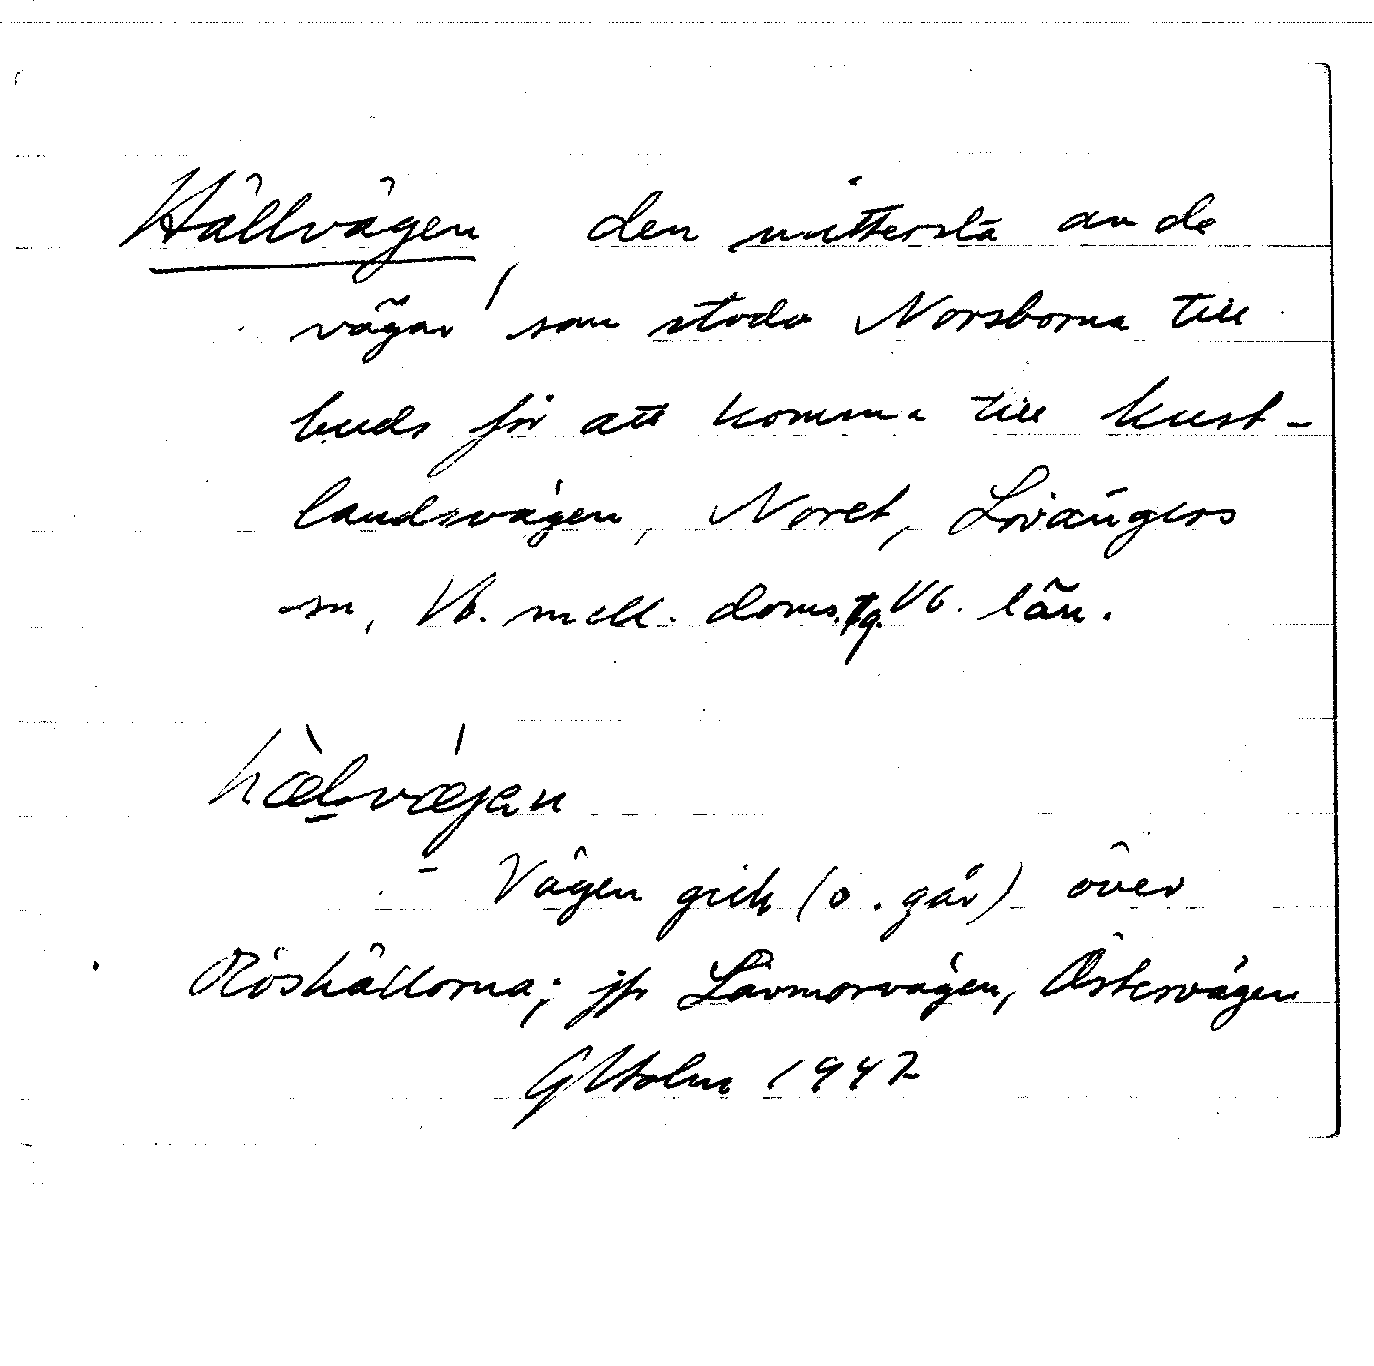 Hällvägen, den mittersta av de
vägar som stodo Norsborna till
buds för att komma till kust-
landsvägen, Noret, Lövångers
sn, Vb. mell. doms. Vb. län.
hæ̀lvǽjen
- Vägen gick (o. går) över
Röshällorna; jfr Lavmorvägen, Östervägen
G Holm 1947